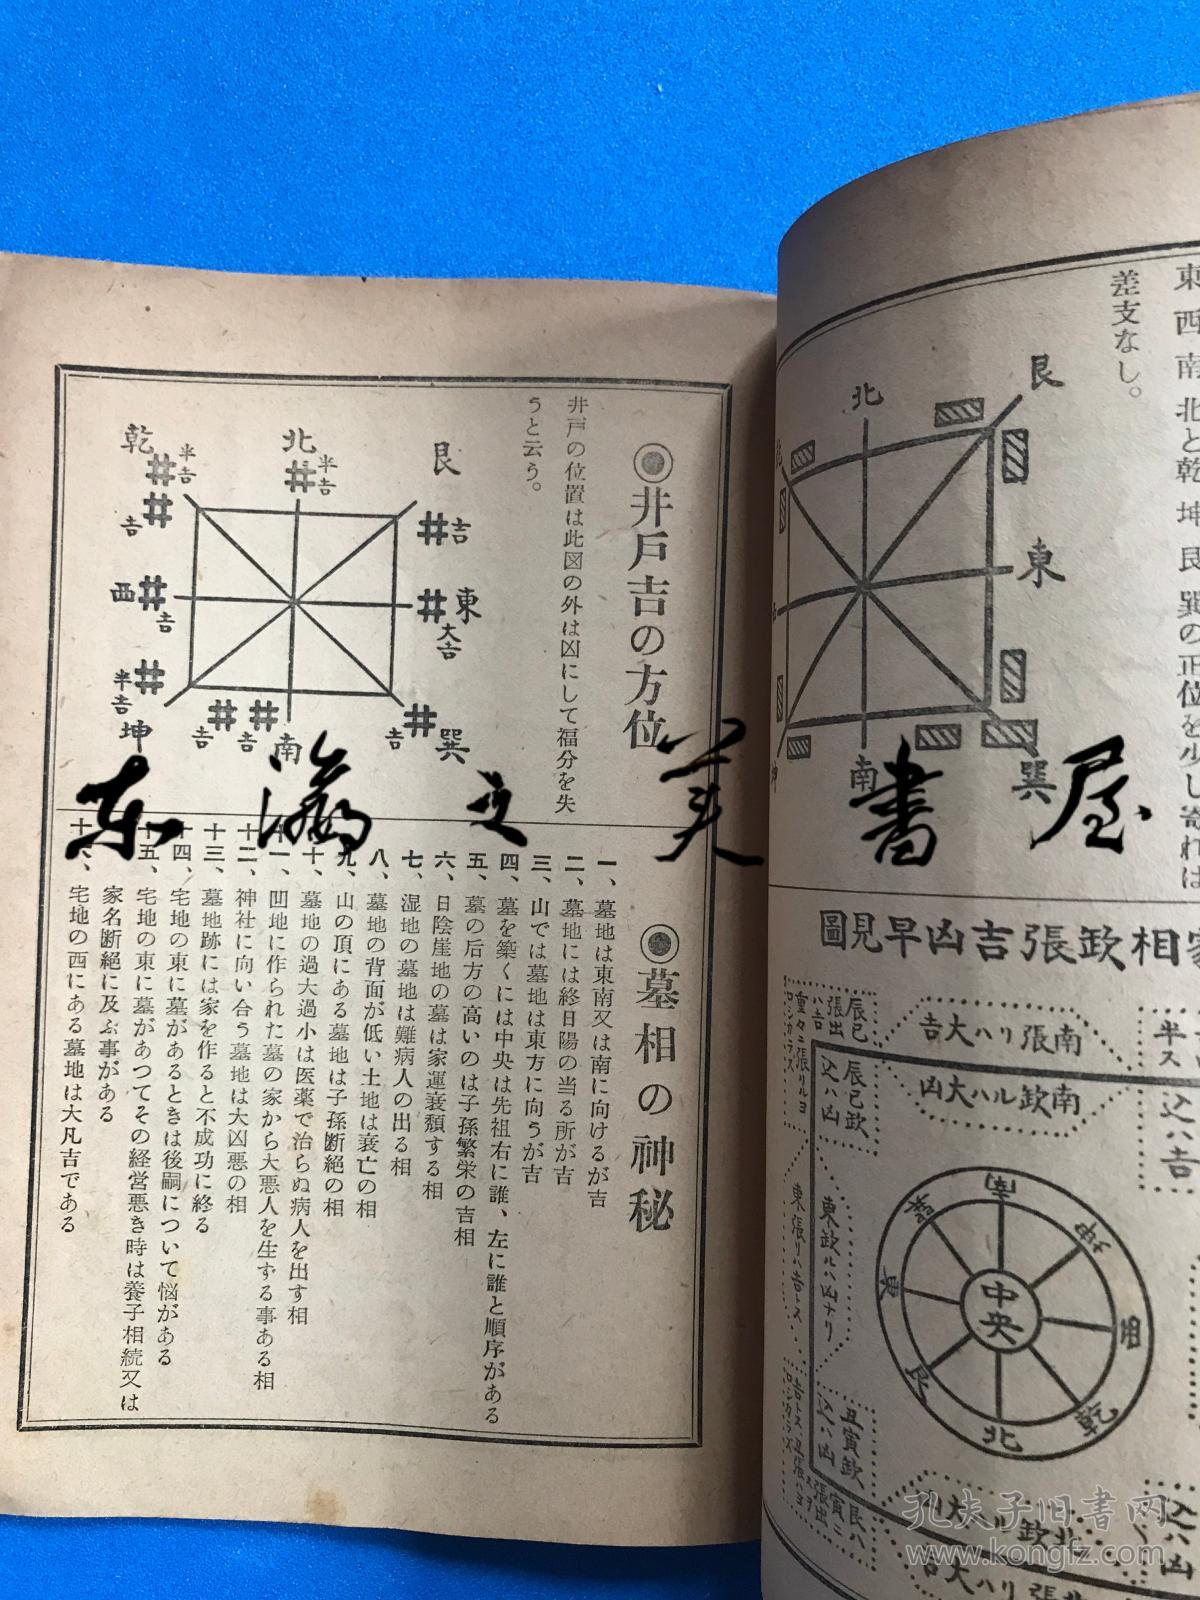 東西南北と乾坤艮巽の正位を少し寄れば
差支なし。
北
艮
東
巽
南
坤
家相欽張吉凶早見圖
南張リハ大吉
南欽ルハ大凶
辰巳
張出
ハ吉
辰巳欽
込ハ凶
東欽ルハ凶ナリ
東張リハ吉トス
丑寅欽
込ハ凶
半ス
込ハ吉
中央
南
坤
酉
乾
北
艮
東
巽
北欽ルハ大凶
北張リハ大吉
込ハ凶
◉井戸吉の方位
井戸の位置は此図の外は凶にして福分を失
うと云う。
乾
半吉
吉
北
半吉
艮
吉
東
大吉
巽
吉
南
吉
吉
坤
半吉
西
吉
◉墓相の神秘
一、墓地は東南又は南に向けるが吉
二、墓地には終日陽の当る所が吉
三、山では墓地は東方に向うが吉
四、墓を築くには中央は先祖右に誰、左に誰と順序がある
五、墓の后方の高いのは子孫繁栄の吉相
六、日陰崖地の墓は家運衰頽する相
七、湿地の墓地は難病人の出る相
八、墓地の背面が低い土地は衰亡の相
九、山の頂にある墓地は子孫断絶の相
十、墓地の過大過小は医薬で治らぬ病人を出す相
十一、凹地に作られた墓の家から大悪人を生ずる事ある相
十二、神社に向い合う墓地は大凶悪の相
十三、墓地跡には家を作ると不成功に終る
十四、宅地の東に墓があるときは後嗣について悩がある
十五、宅地の東に墓があつてその経営悪き時は養子相続又は
家名断絶に及ぶ事がある
十六、宅地の西にある墓地は大凡吉である
东瀛之美書屋
孔夫子旧书网
www.kongfz.com